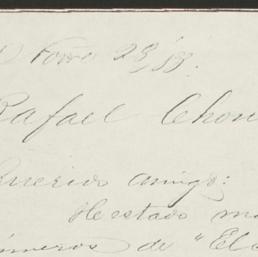 28/88.
Rafael Chou
Querido amigo:
He estado m
números de "El